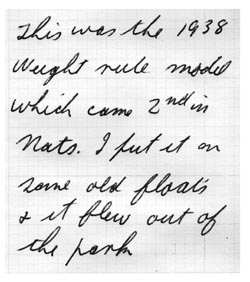 This was the 1938
Weight rule model
which came 2nd in
Nats. I put it on
some old floats
& it flew out of
the park